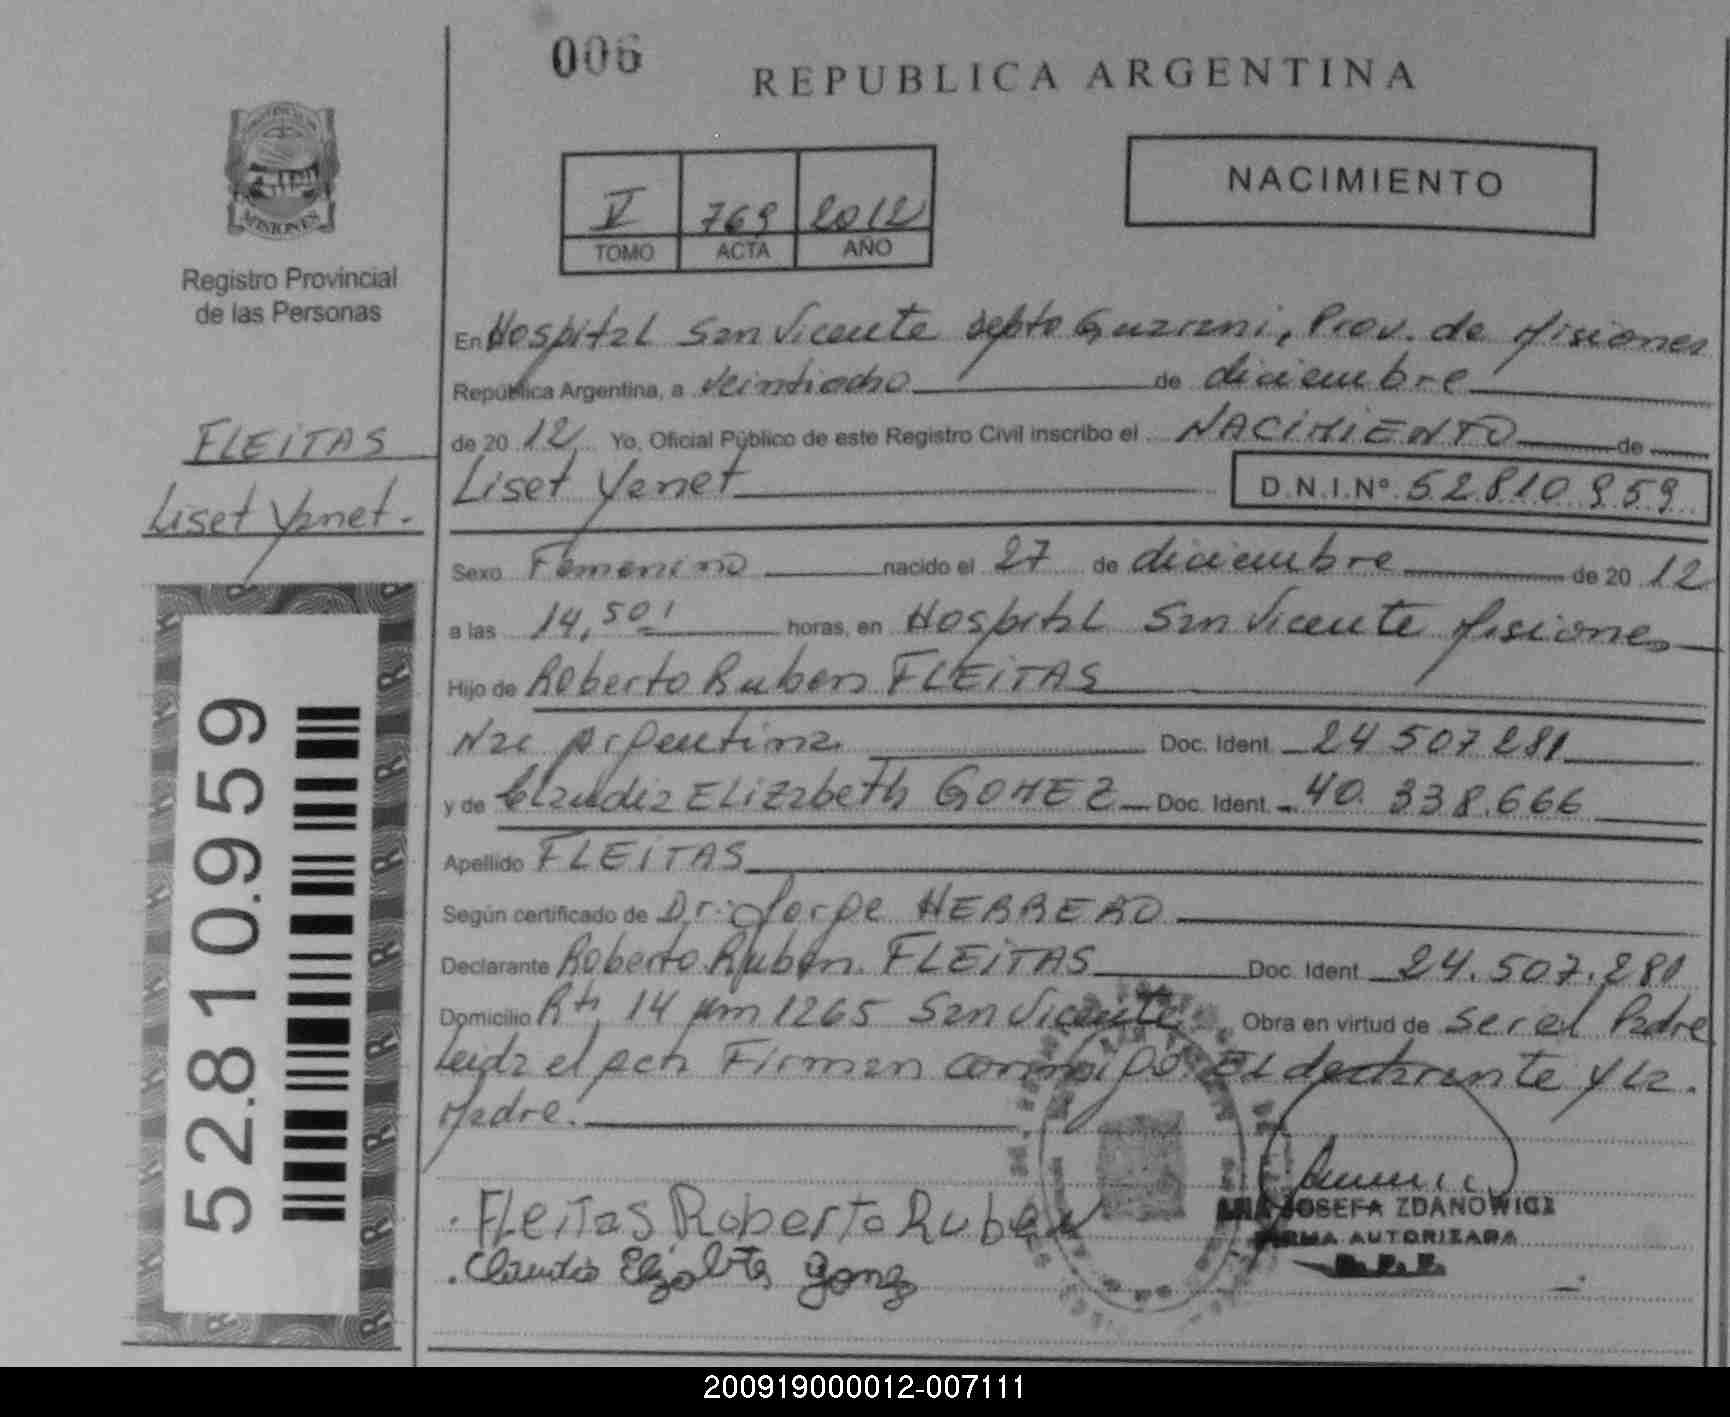 006
REPUBLICA ARGENTINA
NACIMIENTO
V 769 2012
TOMO ACTA AÑO
MISIONES
Registro Provincial
de las Personas
FLEITAS
Liset Yanet.-
52.810.959
En Hospital San Vicente depto Guarani, Prov. de Misiones
República Argentina, a veintiocho de diciembre
de 20 12 Yo, Oficial Público de este Registro Civil inscribo el NACIMIENTO de
Liset Yanet D.N.I.Nº 52810959
Sexo Femenino nacido el 27 de diciembre de 20 12
a las 14,50 horas, en Hospital San Vicente Misiones
Hijo de Roberto Ruben FLEITAS
Nac Argentina Doc. Ident. 24 507 281
y de Claudia ELizabeth GOMEZ Doc. Ident. 40.338.666
Apellido FLEITAS
Según certificado de Dr: Jorge HERRERO
Declarante Roberto Ruben FLEITAS Doc. Ident 24.507.281
Domicilio Rta 14 Km 1265 San Vicente Obra en virtud de ser el Padre
Leida el acta Firman conmigo EL declarante y La
Madre.
FLeitas Roberto Ruben
Claudia Elizabeth Gomez
ANA JOSEFA ZDANOWICZ
FIRMA AUTORIZADA
R.P.P.
200919000012-007111